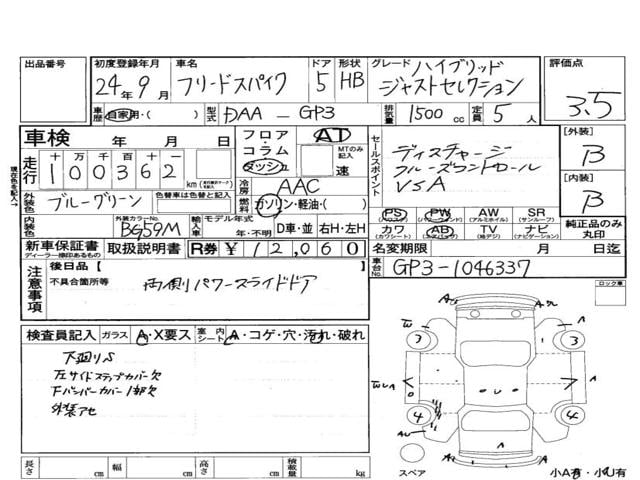 出品番号
初度登録年月
24年 9月
車名
フリードスパイク
ドア
5
形状
HB
グレード ハイブリッド
ジャストセレクション
評価点
3.5
車歴 自家用・( )
型式 DAA - GP3
排気量 1500 cc
定員 5 人
車検 年 月 日
フロア・コラム ダッシュ
AT
MTのみ記入
速
走行 100362 km
冷房 AAC
燃料 ガソリン・軽油・( )
外装色 ブルーグリーン
色替車は色替と記入
内装色
外装カラーNo.
BG59M
輸入車
モデル年式
年・不明
D車・並 右H・左H
セールスポイント
ディスチャージ
クルーズコントロール
VSA
PS PW AW SR
(パワーウィンドウ) (アルミホイル) (サンルーフ)
カワ AB TV ナビ
(カワシート) (エアバック) (地デジ) (ナビゲーション)
[外装]
B
[内装]
B
純正品のみ丸印
新車保証書
ディーラー捺印あるもの
取扱説明書
R券 ¥12,060
名変期限 月 日迄
車台No. GP3-1046337
注意事項
後日品【
不具合箇所等
両側パワースライドドア
ロック車
検査員記入 ガラス A・X要ス 室内シート A・コゲ・穴・汚れ・破れ
下廻りS
左サイドステップカバー欠
Fバンパーカバー1部欠
外装アセ
A
A
W
A
3
3
A
A
4
4
A
スペア
小A有・小U有
長さ cm 幅 cm 高さ cm 積載量 kg
現在色を記入→